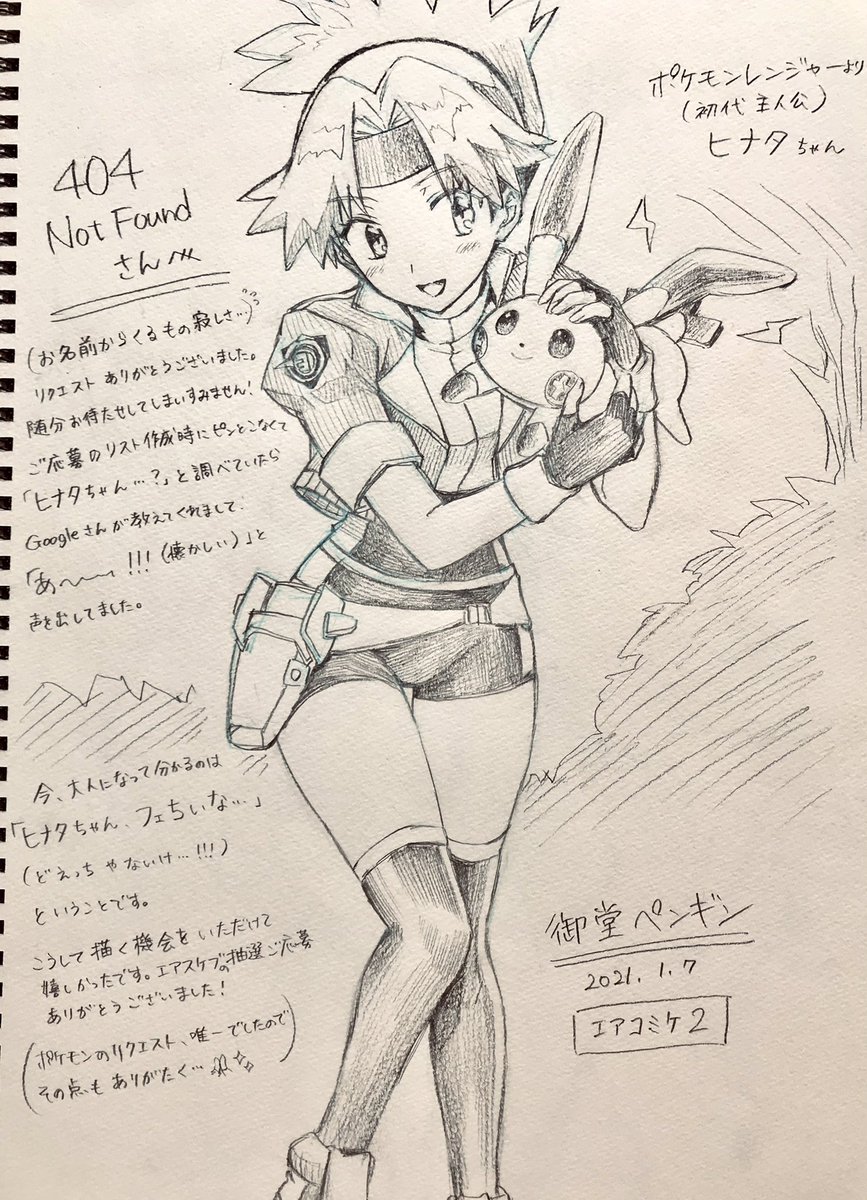 ポケモンレンジャーより
(初代主人公)
ヒナタちゃん
404
Not Found
さんへ
(お名前からくるもの寂しさ…)
リクエストありがとうございました。
随分お待たせしてしまいすみません!
ご応募のリスト作成時にピンとこなくて
「ヒナタちゃん…?」と調べていたら
Googleさんが教えてくれまして、
「あ〜〜!!!(懐かしい)」と
声を出してました。
今、大人になって分かるのは
「ヒナタちゃん、フェちぃな…」
(どえっちゃないけ…!!!)
ということです。
こうして描く機会をいただけて
嬉しかったです。エアスケブの抽選ご応募
ありがとうございました!
(ポケモンのリクエスト、唯一でしたので
その点もありがたく…)
御堂ペンギン
2021.1.7
エアコミケ2